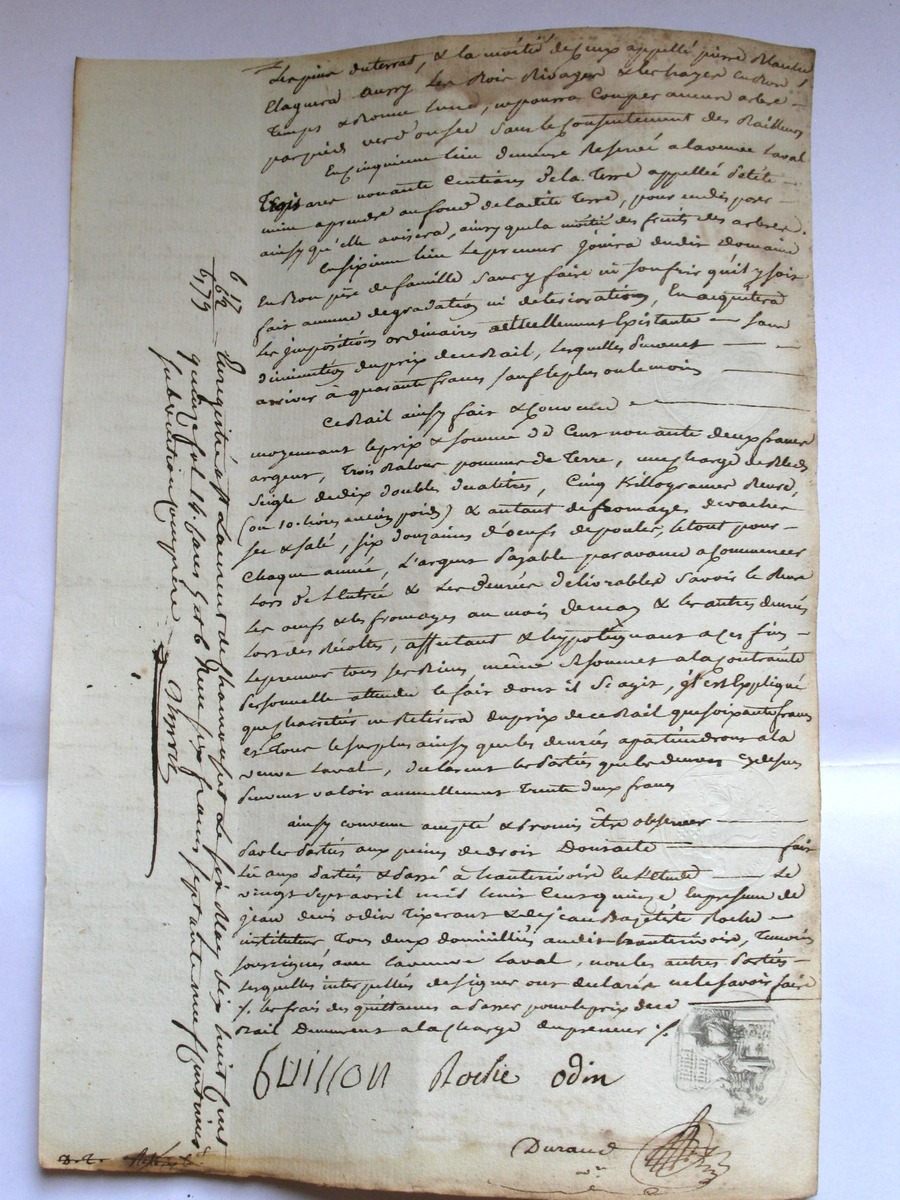 Les pins du terrat, & la moitié de ceux appellé pierre Blanche /
Elaguera aussy les Bois Rivages & les hayes en Bon /
Temps & Bonne Lune, ne pourra Couper aucun arbre —
par pied verd ou sec sans le Consentement des Bailleurs
En Cinquième lieu demeure Reservé a la veuve Laval
Trois ares nonante Centiares de la Terre appellée petite —
a prendre au fond de la dite Terre, pour en disposer —
ainsy qu'elle avisera, ainsy que la moitié des fruits des arbres.
En sixieme lieu Le preneur Jouira dudit Domaine
En Bon père de famille sans y faire ni souffrir qu'il y soit
fait aucune degradation ni deterioration, En aquitera
Les Impositions ordinaires actuellement Existante — sans
diminution du prix de ce Bail, lesquelles peuvent —
arriver à quarante francs sauf le plus ou le moins —
Ce Bail ainsy fait & Convenu —
moyennant le prix & somme de Cent nonante deux francs
argent, Trois pomme de Terre, une charge de Bled
Seigle de dix doubles decalitres, Cinq Killogrames Beure,
(ou 10. livres ancien poids) & autant de fromages de vache
sec & salé, six douzaines d'oeufs de poules, le tout pour —
Chaque année, L'argent payable par avance a Commencer
Lors de L'Entrée & Les denrées délivrables Savoir le Beure
Les oeufs & les fromages au mois de may & les autres denrées
Lors des Récoltes, affectant & hypotéquant a ces fins —
Le preneur tous ses Biens même se soumet a la Contrainte
personnelle attendu le fait dont il s'agit, Il est Expliqué
que ne Retirera du prix de ce Bail que soixante francs
et Tout le surplus ainsy que les denrées apartiendront a la
veuve Laval, declarent les parties que les denrées Cy dessus
peuvent valoir annuellement Trente deux francs
ainsy convenu accepté & promis être observer —
par les parties aux peines de droit Dont acte — fait
Lu aux parties & passé à hauterivoire En L'Etude — Le
vingt Sept avril mil huit Cent quinze En presence de
jean denis odin Tixerant & de jean Baptiste Roche —
instituteur Tous deux domiciliés audit hauterivoire, Temoins
soussignés avec la veuve Laval, non les autres parties —
Lesquelles interpellées de signer ont déclaré ne le savoir faire
/. les frais des quittances a passer pour le prix de ce
Bail Demeurent a la charge du preneur /.
GUILLON Roche odin
Durand
6 17
62
6,79
Enregistré a St Laurent de Chamousset Le six May dix huit Cent
quinze fol. 14. Case 5 et 6 Reçu six francs septante neuf Centimes
subvention Comprise —